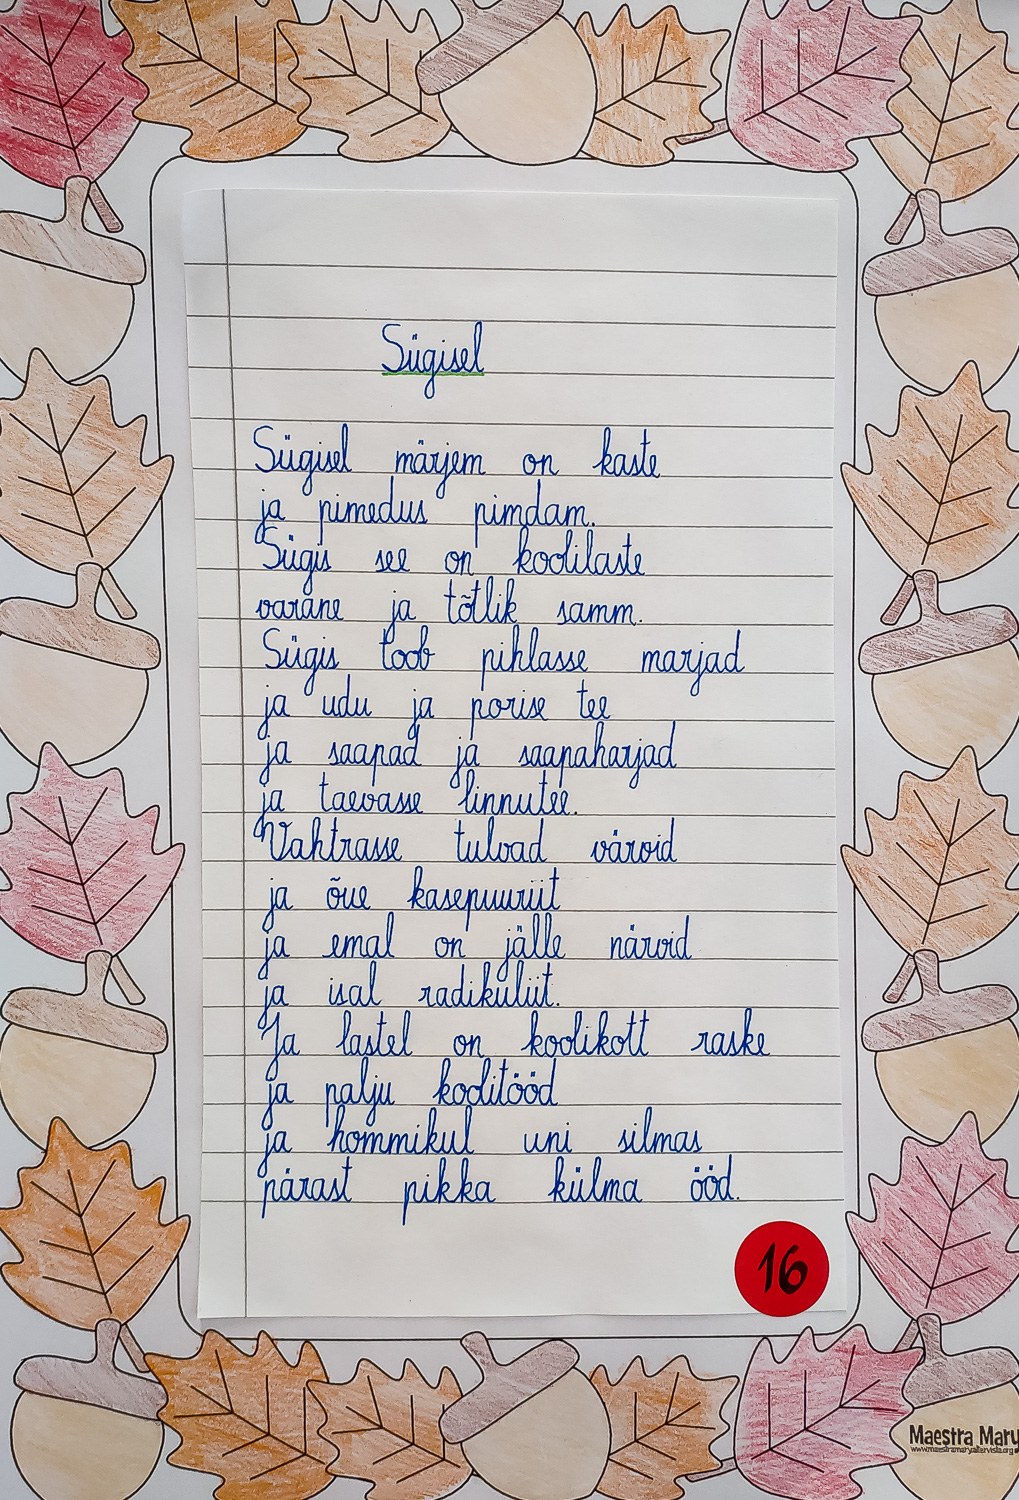 Sügisel
Sügisel märjem on kaste
ja pimedus pimdam.
Sügis see on koolilaste
varane ja tõtlik samm.
Sügis toob pihlasse marjad
ja udu ja porise tee
ja saapad ja saapaharjad
ja taevasse linnutee.
Vahtrasse tulvad värvid
ja õue kasepuuriit
ja emal on jälle närvid
ja isal radikuliit.
Ja lastel on koolikott raske
ja palju koolitööd
ja hommikul uni silmas
pärast pikka külma ööd.
16
Maestra Mary